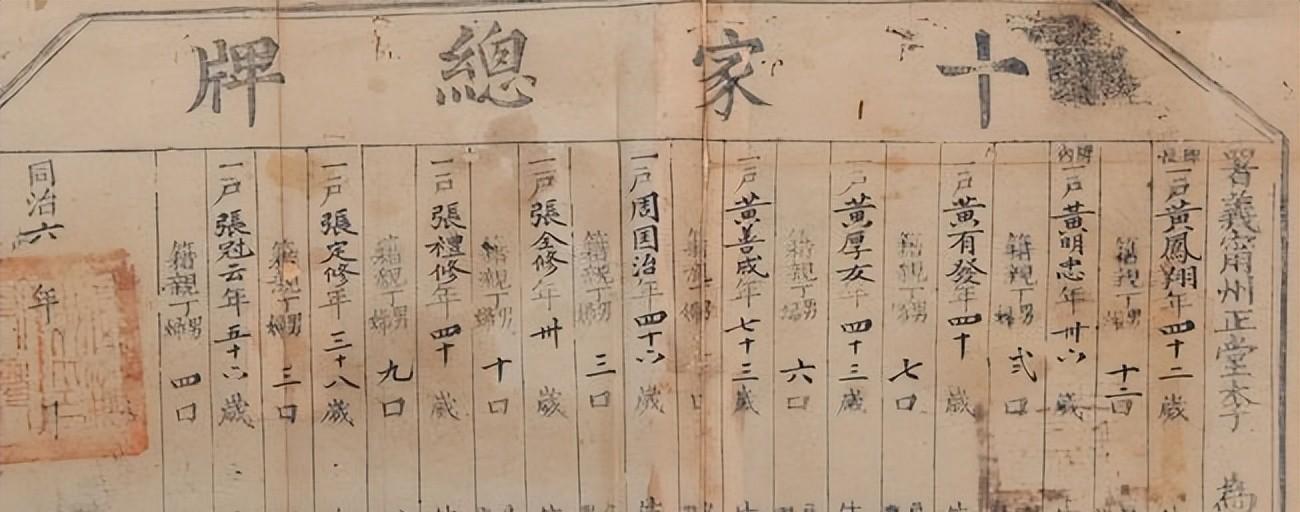 十家總牌
署義寧州正堂李 為
牌長
一戶黃鳳翔年四十二歲
籍親丁男婦十二口
牌內
一戶黃明忠年卅六歲
籍親丁男婦弍口
一戶黃有發年四十歲
籍親丁男婦七口
一戶黃厚友年四十三歲
籍親丁男婦六口
一戶黃善成年七十三歲
籍親丁男婦 口
一戶周国治年四十六歲
籍親丁男婦三口
一戶張全修年卅歲
籍親丁男婦十口
一戶張禮修年四十歲
籍親丁男婦九口
一戶張定修年三十八歲
籍親丁男婦三口
一戶張冠云年五十六歲
籍親丁男婦四口
同治六年 月